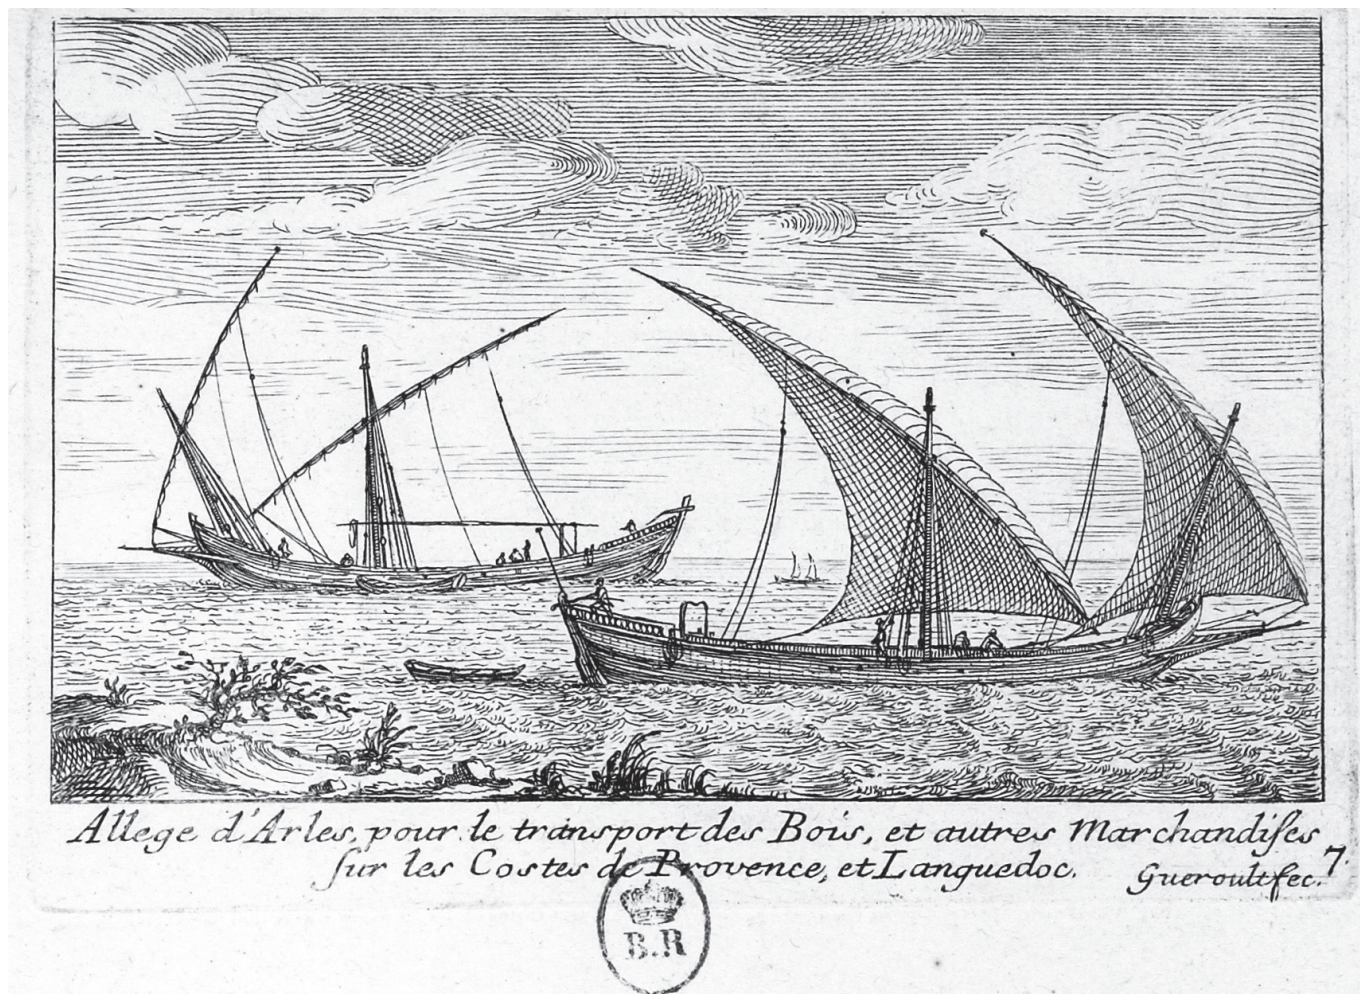 Allege d'Arles, pour le transport des Bois, et autres Marchandiſes
ſur les Costes de Provence, et Languedoc.
Gueroult fec.
7.
B.R